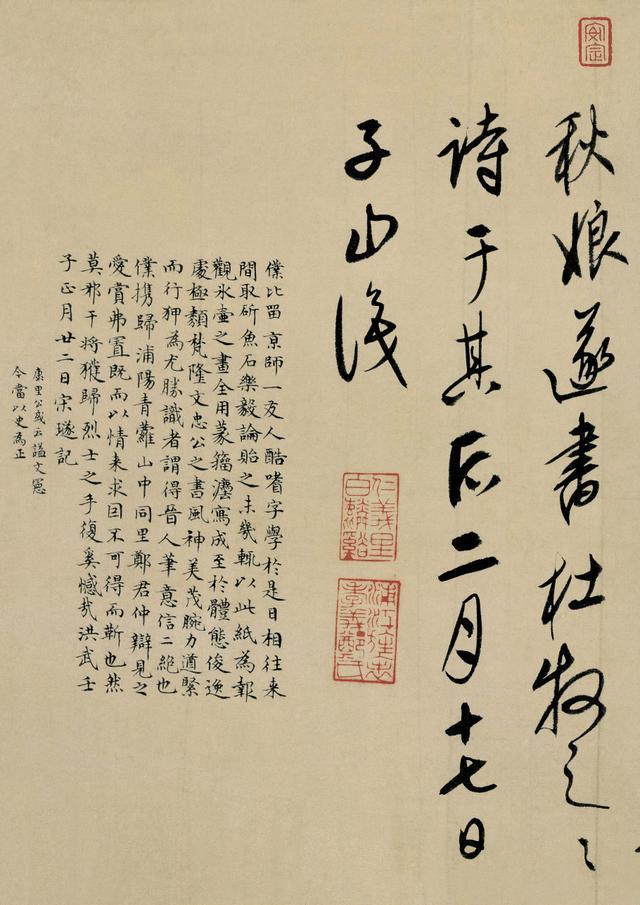 安定
秋娘遂書杜牧之〻
詩于其后二月十七日
子山識
仁義里
白麟谿
浦江旌表
孝義鄭氏
僕比畱京師一友人酷嗜字學於是日相往来
間取斫魚石樂毅論貽之未幾輒以此紙為報
觀氷壷之畫全用篆籀灋寫成至於體態俊逸
處極類梵隆文忠公之書風神美茂腕力遒緊
而行狎為尤勝識者謂得晉人筆意信二絶也
僕携歸浦陽青蘿山中同里鄭君仲辯見之
愛賞弗置既而以情来求因不可得而靳也然
莫邪干将獲歸烈士之手復奚憾㢤洪武壬
子正月廿二日宋璲記
康里公或云謚文憲
今當以史為正